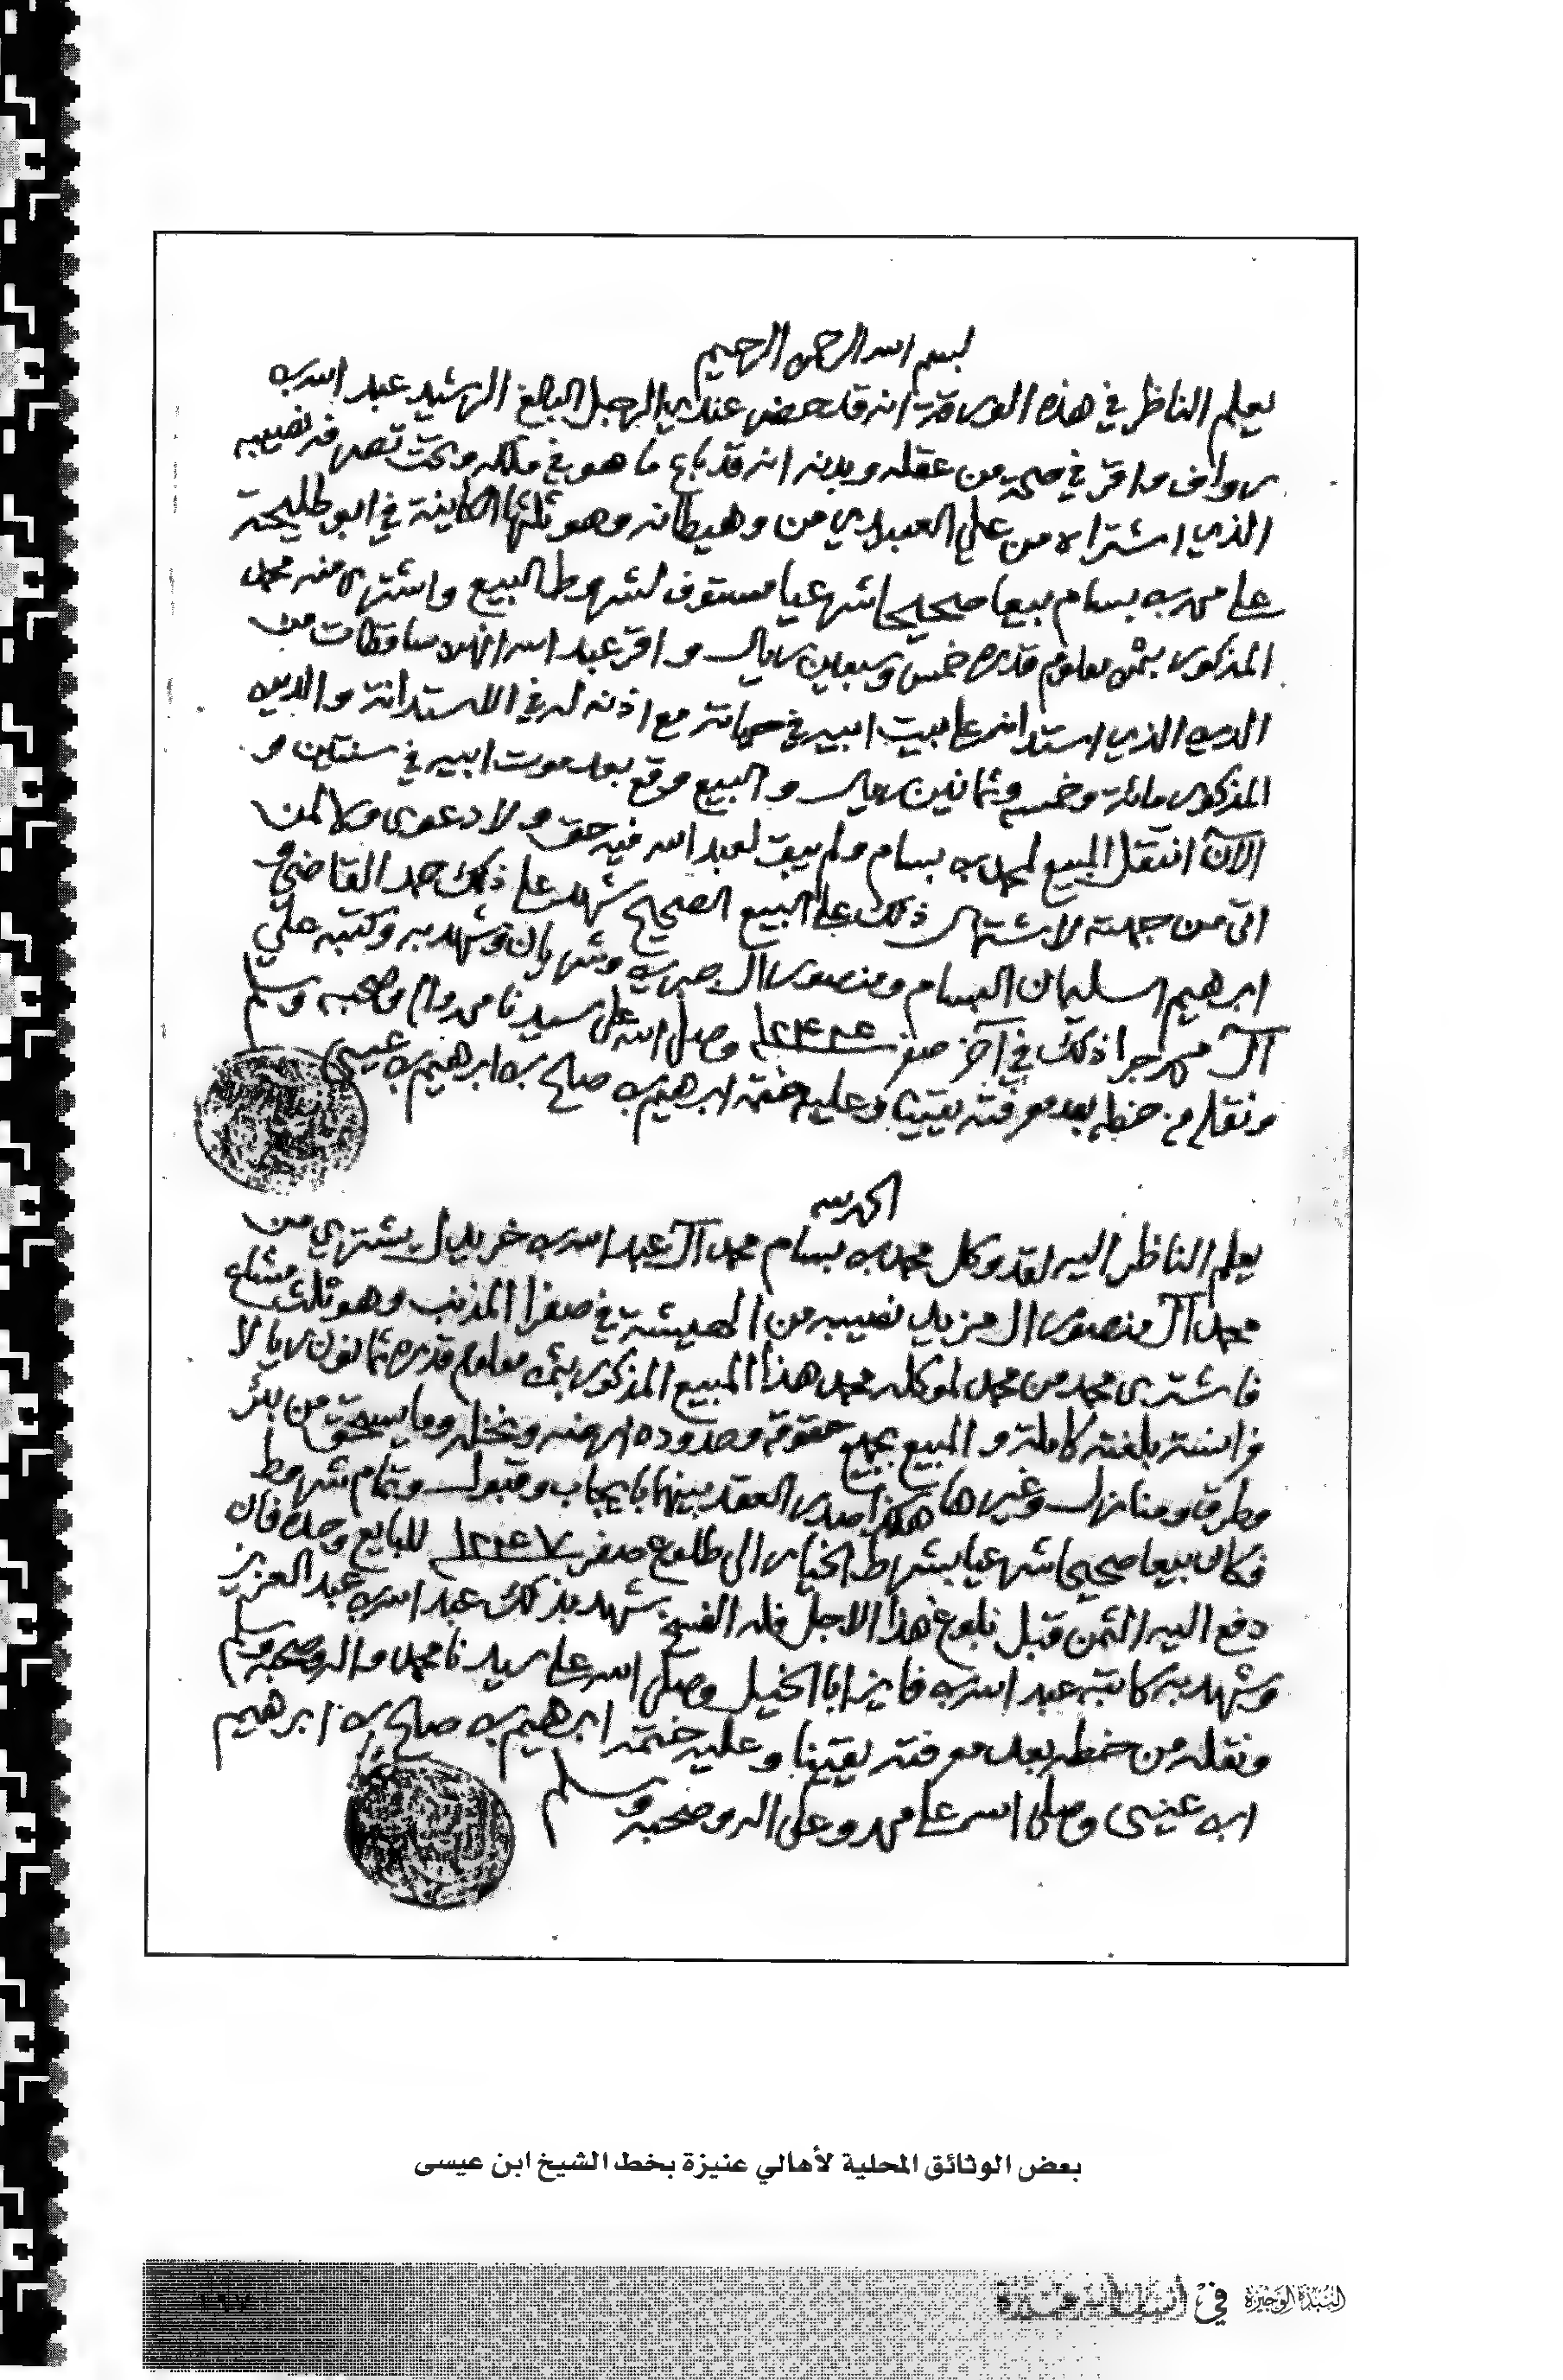 بسم الله الرحمن الرحيم
يعلم الناظر في هذه الورقة انه قد حضر عندي الرجل البالغ الرشيد عبد الله بن
رواف واقر في صحة من عقله وبدنه انه قد باع ما هو في ملكه وتحت تصرفه نصيبه
الذي اشتراه من علي العبداري من وهيطانه وهو ثلثها الكاينة في ابو طليحة
على محمد بن بسام بيعا صحيحا شرعيا مستوف لشروط البيع واشترى منه محمد
المذكور بثمن معلوم قدره خمس وسبعين ريال واقر عبد الله انهن ساقطات من
الدين الذي استدانه على بيت ابيه في حياته مع اذنه له في الاستدانة والدين
المذكور مائة وخمسه وثمانين ريال والبيع وقع بعد موت ابيه في سنتين و
الآن انتقل المبيع لمحمد بن بسام ولم يبق لعبد الله فيه حق ولا دعوى ولا لمن
اتى من جهته لاشتهار ذلك على البيع الصحيح شهد على ذلك حمد القاضي و
ابرهيم السليمان البسام ومنصور ال وشهد به وكتبه علي
آل محمد جرا ذلك في آخر صفر وصلى الله على سيدنا محمد واله وصحبه وسلم
ونقله من خطه بعد معرفته يقينا وعليه ختمه ابرهيم بن صالح بن ابرهيم بن عيسى
الحمد لله
يعلم الناظر اليه لقد وكل محمد بن بسام محمد آل عبد الله بن يشتري من
محمد آل منصور ال مزيد نصيبه من الهيشة في صفرا المذنب وهو ثلث مشاع
فاشترى محمد من محمد لموكله محمد هذا المبيع المذكور بثمن معلوم قدره ثمانون ريالا
فرانسة بلغته كاملة والمبيع بجميع حقوقه وحدوده ارضه ونخله وما يستحق من بئر
وطرق ومنازل وغيرها هكذا صدر العقد بينهما بايجاب وقبول وتمام شروط
فكان بيعا صحيحا شرعيا بشرط الخيار الى طلوع صفر ١٢٤٧ للبايع وحده فان
دفع اليه الثمن قبل بلوغ هذا الاجل فله الفسخ شهد بذلك عبد الله بن عبد العزيز
وشهد به كاتبه عبد الله بن فايز ابا الخيل وصلى الله على سيدنا محمد واله وصحبه وسلم
ونقله من خطه بعد معرفته يقينا وعليه ختمه ابرهيم بن صالح بن ابرهيم
ابن عيسى وصلى الله على محمد وعلى اله وصحبه وسلم
بعض الوثائق المحلية لأهالي عنيزة بخط الشيخ ابن عيسى
النبذة الوجيزة في أنساب أسر عنيزة